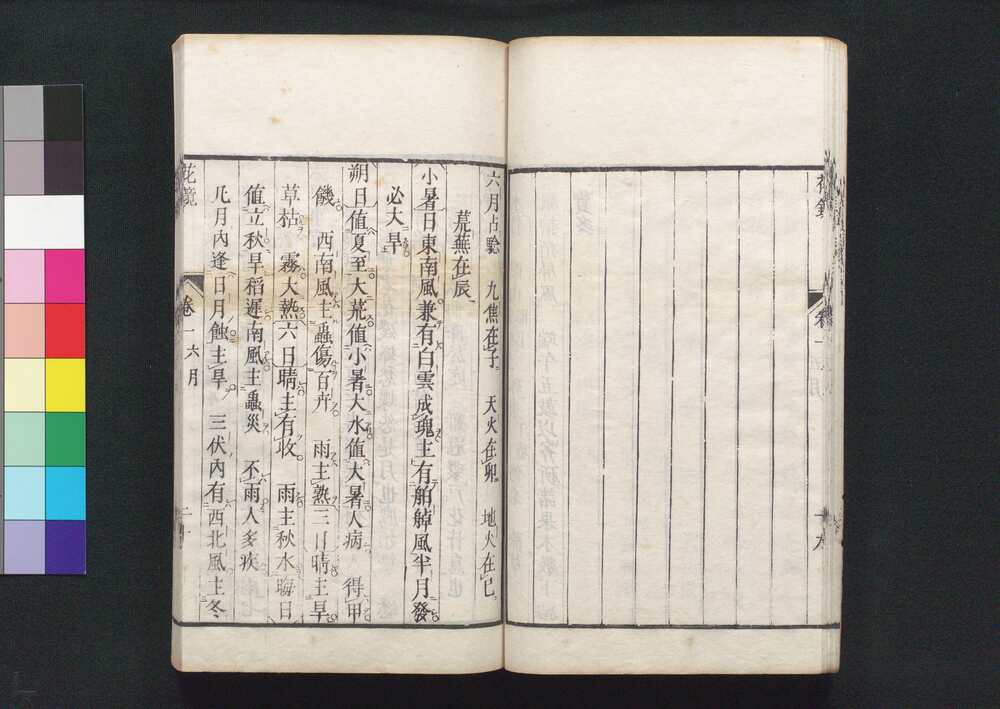 花鏡
卷一 五月
十九
六月占驗 九焦在子 天火在卯 地火在巳
荒蕪在辰
小暑日東南風兼有白雲成塊主有舶䑲風半月發
必大旱
朔日值夏至大荒值小暑大水值大暑人病 得甲
饑 西南風主蟲傷百卉 雨主熟三日晴主旱
草枯 霧大熱六日晴主有收 雨主秋水晦日
值立秋早稻遲南風主蟲災 不雨人多疾
凡月內逢日月蝕主旱 三伏內有西北風主冬
花鏡
卷一 六月
二十